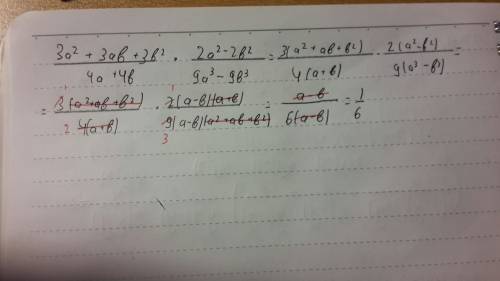 (3a² + 3ab + 3b²)/(4a + 4b) · (2a² - 2b²)/(9a³ - 9b³) = 3(a² + ab + b²)/4(a+b) · 2(a² - b²)/9(a³ - b³) =
= 3(a² + ab + b²)/4(a+b) · 2(a-b)(a+b)/9(a-b)(a² + ab + b²) = (a-b)/6(a-b) = 1/6